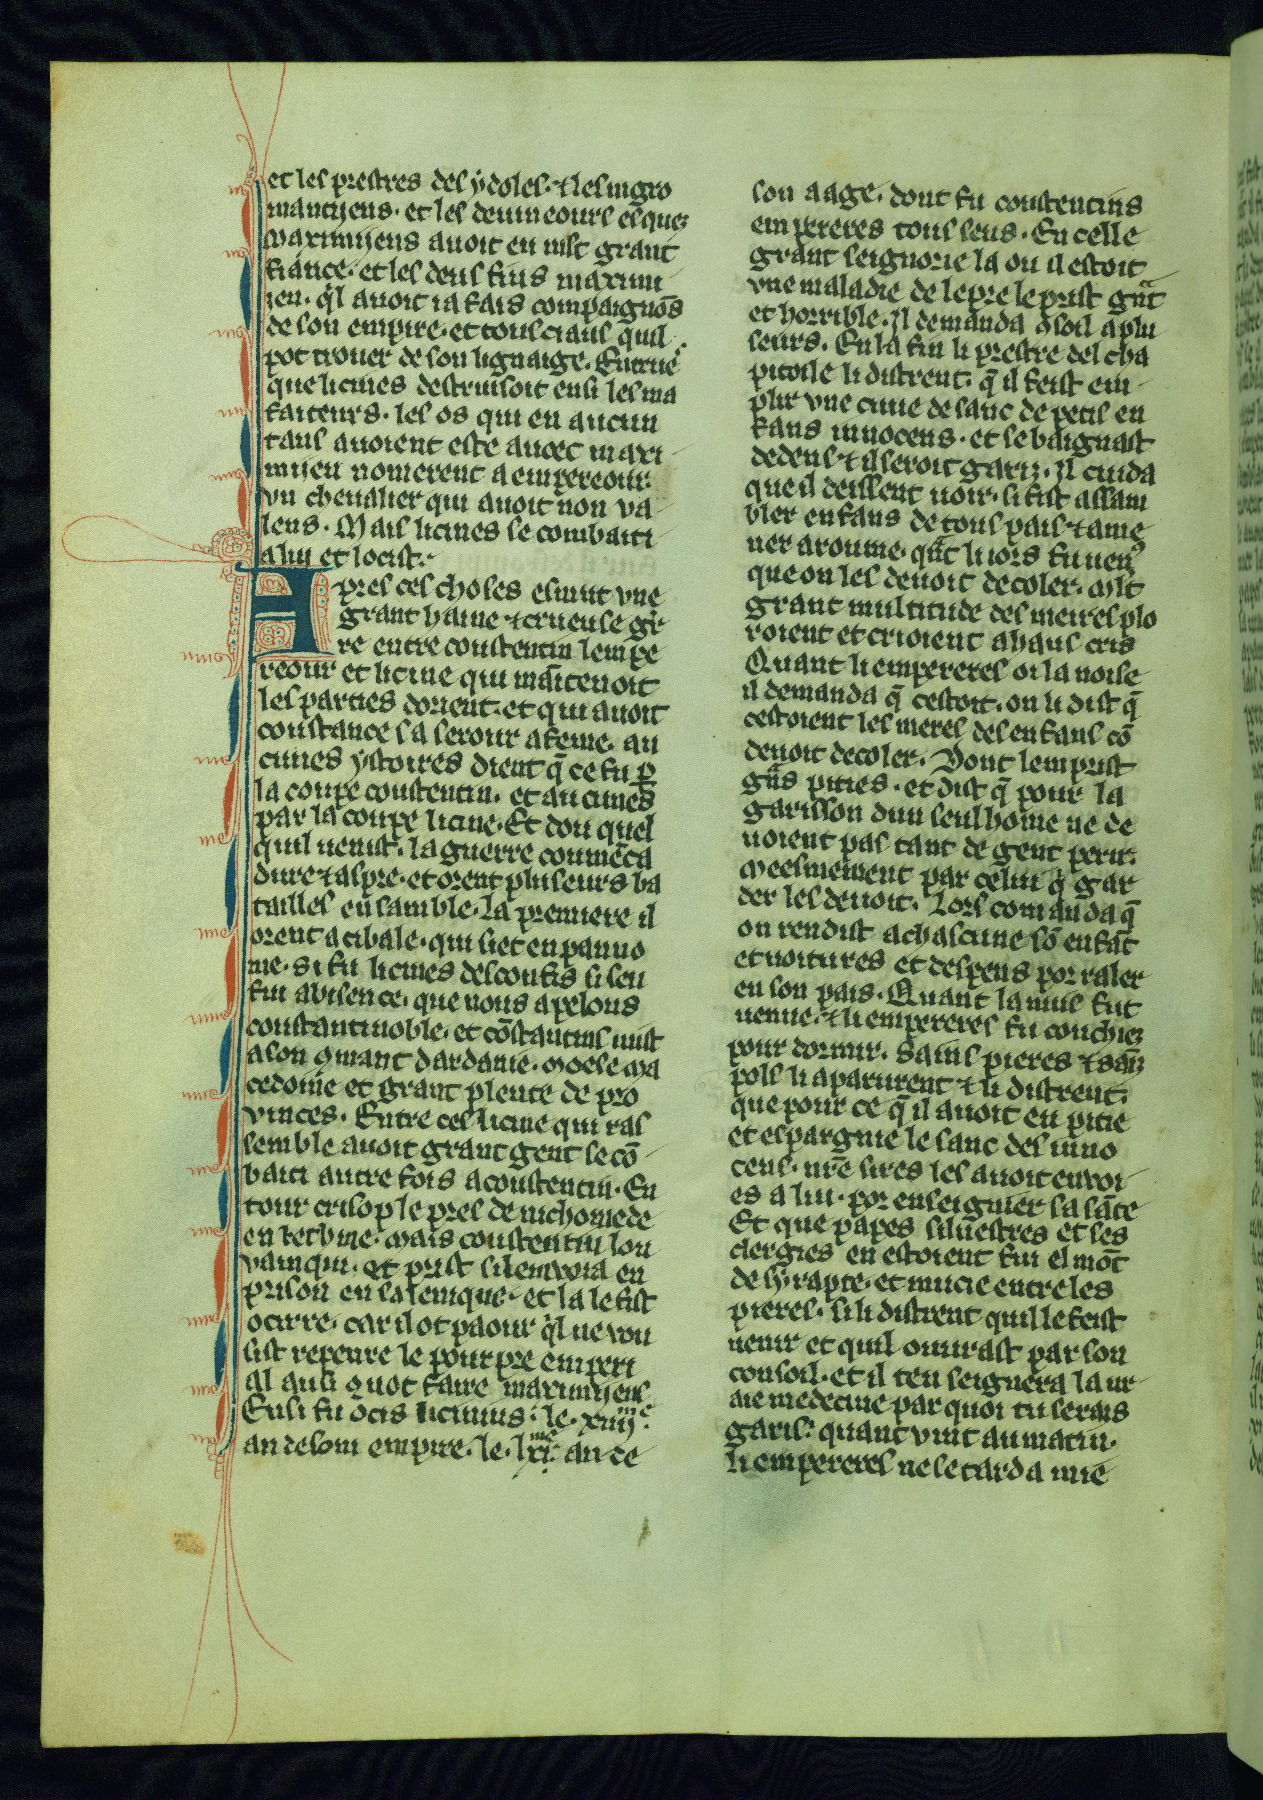 et les prestres des ydoles. ⁊ les nigro
manciens. et les deuineours es quez
Maximijens auoit eu mlt grant
fiance. et les deus fius maximi
ien. ql auoit ia fais compaignōs
de son empire. et tous ciaus quil
pot trouer de son lignaige. Entrue
que licines destruisoit ensi les ma
faiteurs. les os qui en aucun
tans auoient este auoec maxi
mijen nomerent a empereour.
vn cheualier qui auoit non va
lens. Mais licines se combati
a lui et locist.
Apres ces choses esmut vne
grant haine ⁊ crueuse gr̄
re entre constentin lempe
reour et licine qui mātenoit
les parties dorient. et qui auoit
constance sa serour a feme. au
cunes ystoires dient q̄ ce fu p̱
la coupe constentin. et aucunes
par la coupe licine. Et dou quel
quil uenist. la guerre coumēca
dure ⁊ aspre. et orent pluseurs ba
tailles ensamble. la premiere il
orent a cibale. qui siet en panno
nie. Si fu licines desconfis si sen
fui a bisence. que nous apelons
constantinoble. et cōstantins mist
a son 9mant dardanie. Moese Ma
cedonie et grant plente de pro
vinces. Entre ces licine qui ras
semble auoit grant gent se cō
bati autre fois a constentin. En
tour crisople pres de nichomede
en bethine. Mais constentin lou
vainqui. et prist si lenvoia en
prison en salenique. et la le fist
ocirre. car il ot paour ql ne vou
sist repenre le pourpre emperi
al ausi 9 uot faire maximijens
Ensi fu ocis licinius. le. xiiij.e
an de som empire. le. lxi.me an de
son aage. dont fu constentins
empereres tous seus. En celle
grant seignorie la ou il estoit
vne maladie de lepre le prist gnt
et horrible. Il demanda 9soil a plu
seurs. En la fin li prestre del cha
pitoile li distrent. q̄ il feist em
plir vne cuue de sanc de petis en
fans innocens. et se baignast
dedens ⁊ il seroit gariz. Il cuida
que il deissent uoir. si fist assam
bler enfans de tous pais ⁊ ame
ner a roume. qnt li iors fu uen9
que on les deuoit decoler. mlt
grant multitude des meires plo
roient et crioient a haus cris
Quant li empereres oi la noise
il demanda q̄ cestoit. on li dist q̄
cestoient les meres des enfans cō
deuoit decoler. Dont lem prist
gns pities. et dist q̄ pour la
garisson dun seul home ne de
uoient pas tant de gent perir.
Meesmement par celui q̄ gar
der les deuoit. Lors comanda q̄
on rendist a chascune sō enfāt
et uoitures et despens por raler
en son pais. Quant la nuis fut
uenue. ⁊ li empereres fu couchiez
pour dormir. Sains pieres ⁊ sāīz
pols li aparurent ⁊ li distrent.
que pour ce q̄ il auoit eu pitie
et espargnie le sanc des inno
cens. nr̄e sires les auoit envoi
es a lui. por enseignier sa sāte
Et que papes siluestres et ses
clergies en estoient fui el mōt
de syrapte. et mucie entre les
pieres. si li distrent quil le feist
uenir et quil ouurast par son
consoil. et il ten seignera la ur
aie medecine par quoi tu serais
garis. quant vint au matin.
li empereres ne se tarda mie